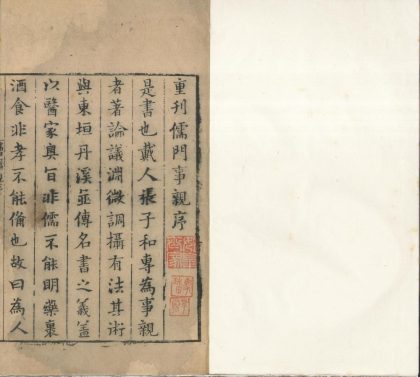 重刊儒門事親序
是書也戴人張子和專為事親
者著論議淵微調攝有法其術
與東垣丹溪並傳名書之義盖
以醫家奧旨非儒不能明藥裹
酒食非孝不能備也故曰為人